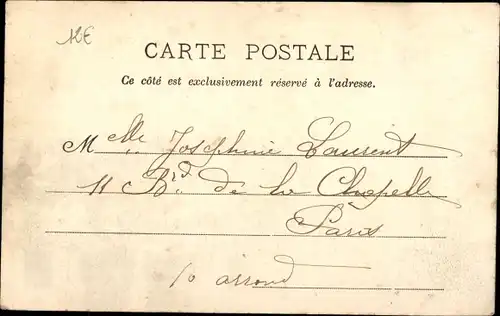 12E
CARTE POSTALE
Ce côté est exclusivement réservé à l'adresse.
Mlle Joséphine Laurent
11 Bd. de la Chapelle
Paris
10 arrond